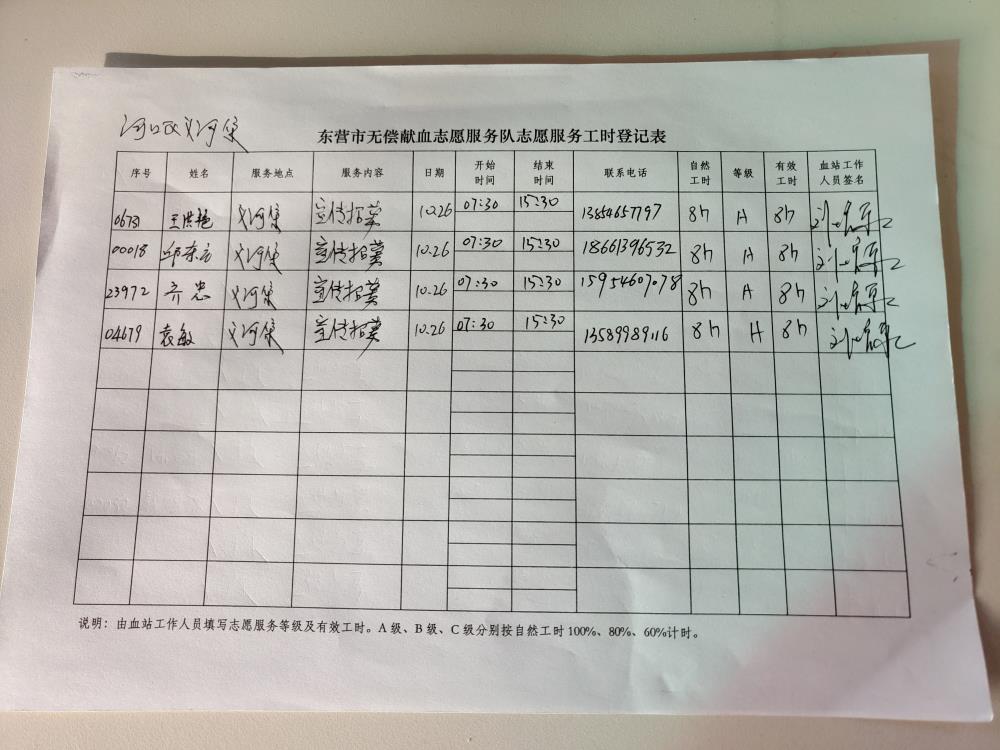 河口区义河集
东营市无偿献血志愿服务队志愿服务工时登记表
序号 姓名 服务地点 服务内容 日期 开始时间 结束时间 联系电话 自然工时 等级 有效工时 血站工作人员签名
王洪艳 义河集 宣传招募 10.26 07:30 15:30 13854657797 8h A 8h
00018 邱东方 义河集 宣传招募 10.26 07:30 15:30 18661396532 8h A 8h
23972 齐忠 义河集 宣传招募 10.26 07:30 15:30 15954607078 8h A 8h
04679 袁敏 义河集 宣传招募 10.26 07:30 15:30 13589989116 8h A 8h
说明：由血站工作人员填写志愿服务等级及有效工时。A级、B级、C级分别按自然工时100%、80%、60%计时。